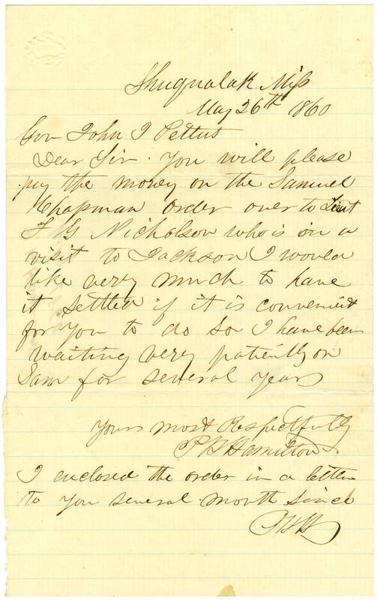 Shuqualak Miss
May 26th 1860
Gov John J Pettus
Dear Sir. You will please
pay the money on the Samuel
Chapman order over to Lieut
F G Nicholson who is on a
visit to Jackson I would
like very much to have
it settled if it is convenient
for you to do so I have been
waiting very patiently on
Sam for several years
Yours most Respectfully
P B Hamilton
I enclosed the order in a letter
to you several month since